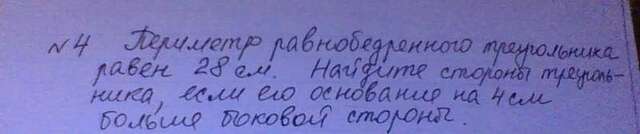 №4 Периметр равнобедренного треугольника
равен 28 см. Найдите стороны треуголь-
ника, если его основание на 4 см
больше боковой стороны.